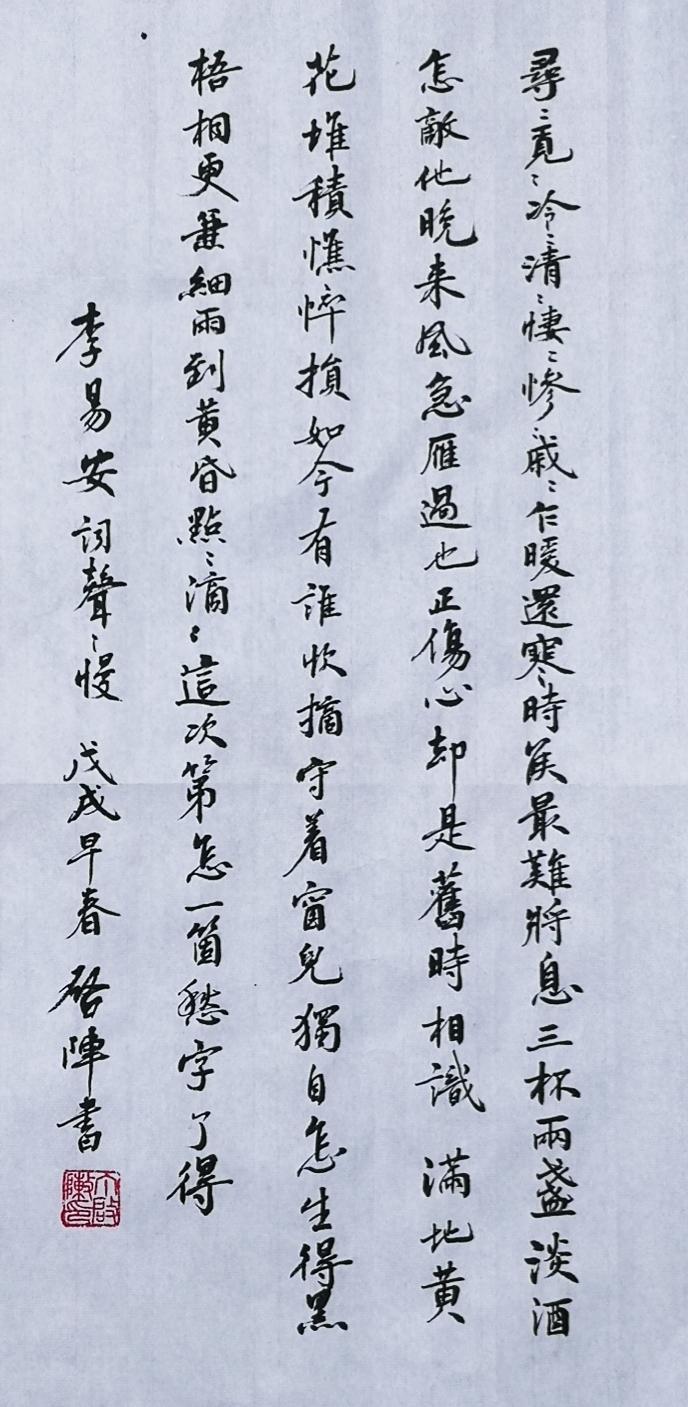 尋〻覓〻冷〻清〻悽〻慘〻戚〻乍暖還寒時候最難將息三杯兩盞淡酒
怎敵他晚来風急雁過也正傷心却是舊時相識 滿地黃
花堆積憔悴損如今有誰忺摘守着窗兒獨自怎生得黑
梧桐更兼細雨到黃昏點〻滴〻這次第怎一箇愁字了得
李易安詞聲〻慢 戊戌早春 啓陣書